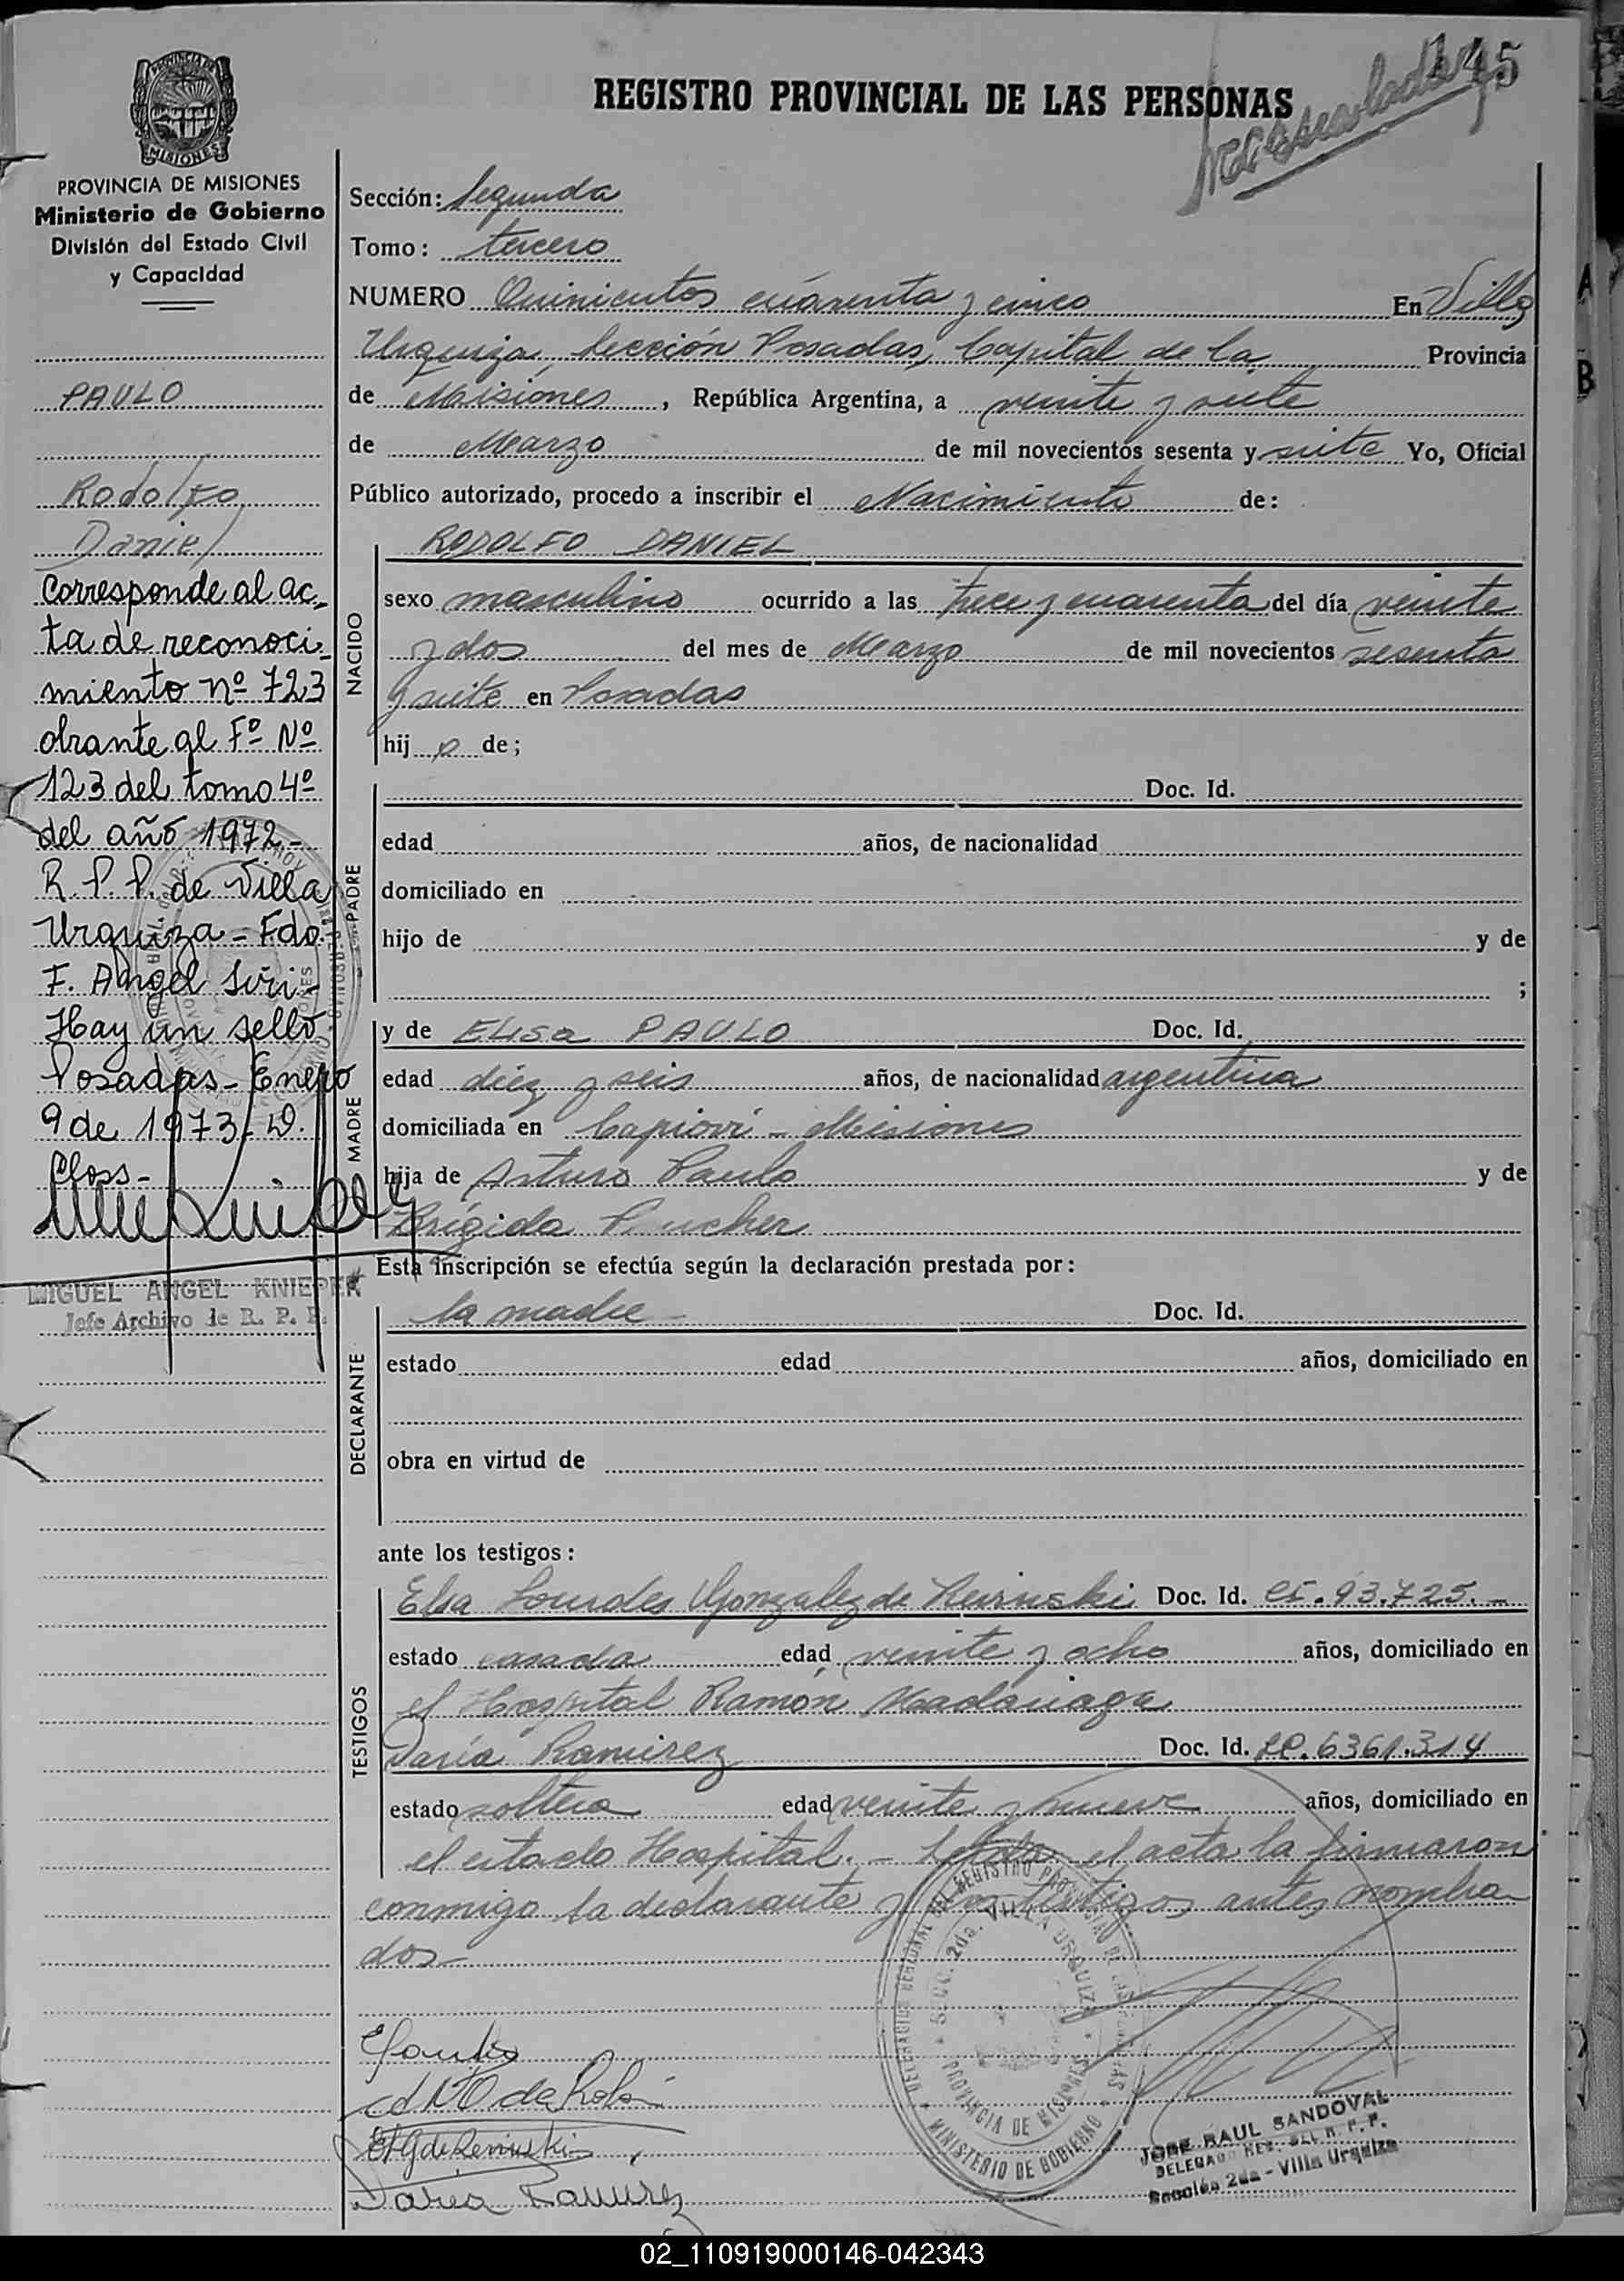 145
REGISTRO PROVINCIAL DE LAS PERSONAS
PROVINCIA DE
MISIONES
PROVINCIA DE MISIONES
Ministerio de Gobierno
División del Estado Civil
y Capacidad
PAULO
Rodolfo
Daniel
Corresponde al ac-
ta de reconoci-
miento nº 723
obrante al Fº Nº
123 del tomo 4º
del año 1972-
R. P. P. de Villa
Urquiza - Fdo:
F. Angel
Hay un sello
Posadas - Enero
9 de 1973.
Closs-
MIGUEL ANGEL KNIEPER
Jefe Archivo de R. P. P.
Sección: Segunda
Tomo: tercero
NUMERO Quinientos cuarenta y cinco En Villa
Urquiza, Sección Posadas, Capital de la Provincia
de Misiones, República Argentina, a veinte y siete
de Marzo de mil novecientos sesenta y siete Yo, Oficial
Público autorizado, procedo a inscribir el Nacimiento de:
RODOLFO DANIEL
NACIDO
sexo masculino ocurrido a las trece y cuarenta del día veinte
y dos del mes de Marzo de mil novecientos sesenta
y siete en Posadas
hij o de;
PADRE
Doc. Id.
edad años, de nacionalidad
domiciliado en
hijo de y de
;
MADRE
y de ELISA PAULO Doc. Id.
edad diez y seis años, de nacionalidad argentina
domiciliada en Capioví - Misiones
hija de Arturo Paulo y de
Brígida
Esta inscripción se efectúa según la declaración prestada por:
DECLARANTE
la madre Doc. Id.
estado edad años, domiciliado en
obra en virtud de
ante los testigos:
TESTIGOS
Elsa Lourdes Gonzalez de Doc. Id. 93.725.-
estado casada edad veinte y ocho años, domiciliado en
el Hospital Ramón Madariaga
Daría Ramirez Doc. Id. 6361.314
estado soltera edad veinte y nueve años, domiciliado en
el citado Hospital.- Leída el acta la firmaron
conmigo la declarante y los testigos antes nombra-
dos-
Daria Ramirez
DELEGACION REGIONAL DEL REGISTRO PROVINCIAL DE LAS PERSONAS
SECC. 2da. VILLA URQUIZA
PROVINCIA DE MISIONES
MINISTERIO DE GOBIERNO
JOSE RAUL SANDOVAL
DELEGADO REG. DEL R. P. P.
Sección 2da - Villa Urquiza
02_110919000146-042343